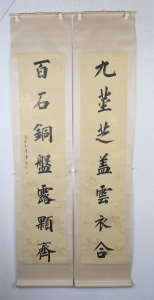 九莖芝盖雲衣合
百石銅盤露顆齊